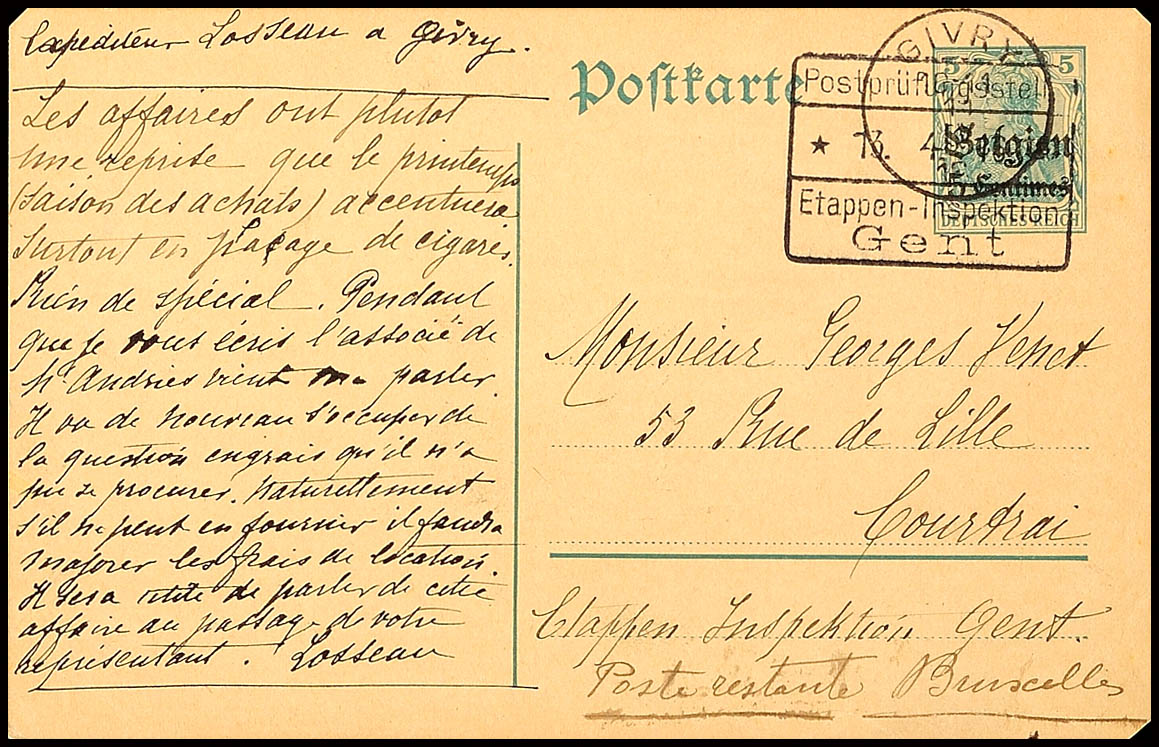 Expéditeur Losseau a Givry.
Les affaires ont plutot
une reprise que le printemps
(saison des achats) accentuera
surtout en plaçage de cigares.
Rien de spécial. Pendant
que je vous écris l'associé de
Mr Andries vient me parler.
Il va de nouveau s'occuper de
la question engrais qu'il n'a
pu se procurer. Naturellement
s'il ne peut en fournir il faudra
majorer les frais de location.
Il sera utile de parler de cette
affaire au passage de votre
représentant. Losseau
Postkarte
GIVRY
5 5
Postprüfungsstelle
* 13. 4.
Belgien
5 Centimes
Etappen-Inspektion
DEUTSCHES REICH
Gent
Monsieur Georges Venet
53 Rue de Lille
Courtrai
Etappen Inspektion Gent.
Poste restante Bruxelles